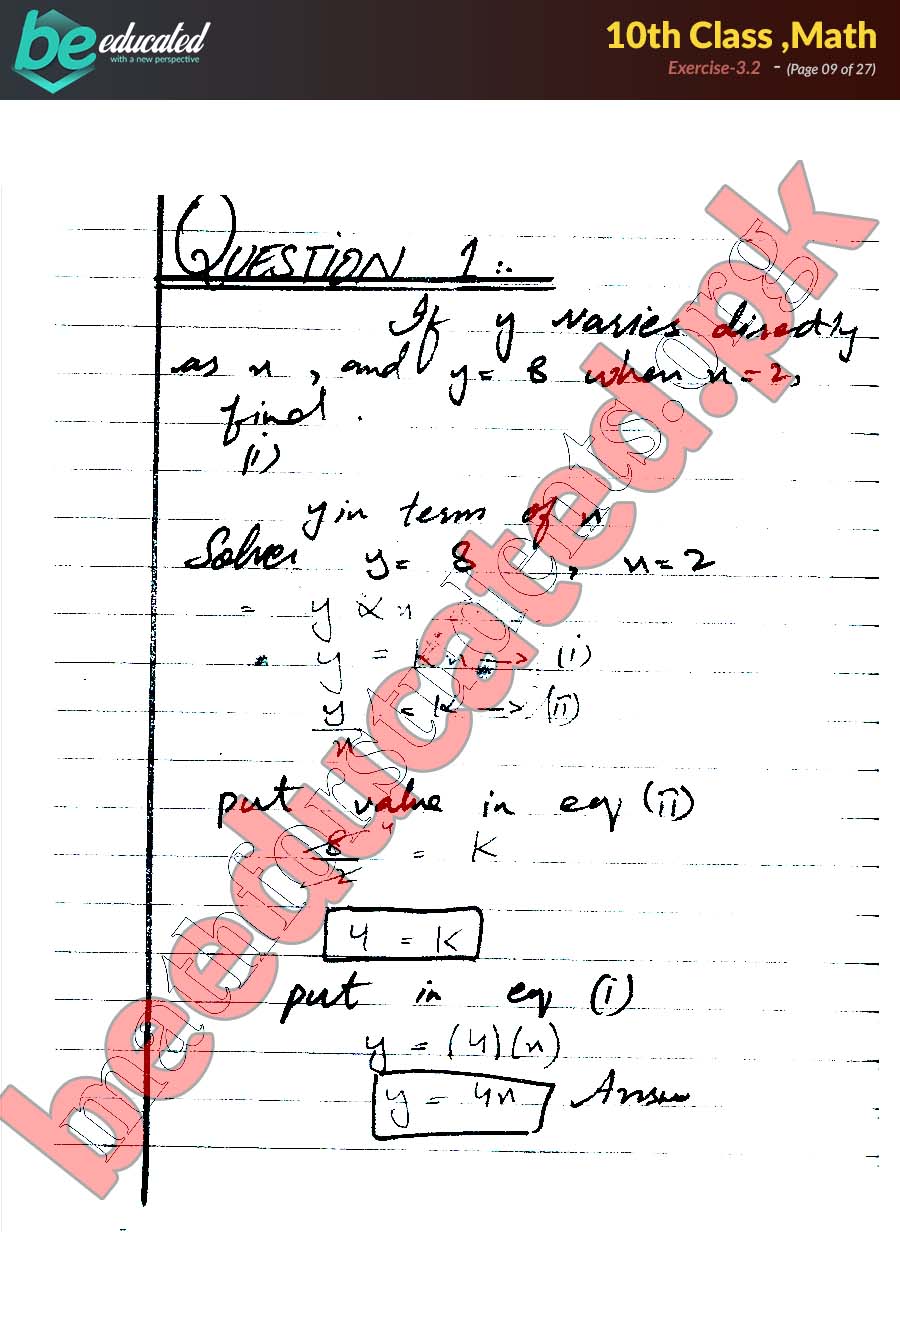 be educated
with a new perspective
10th Class ,Math
Exercise-3.2 - (Page 09 of 27)
QUESTION 1:-
If y varies directly
as x, and y = 8 when x = 2,
find.
(i)
y in term of x
Solve y = 8 , x = 2
= y ∝ x
y = Kx → (i)
y/x = K → (ii)
put value in eq (ii)
8/2 4 = K
4 = K
put in eq (i)
y = (4)(x)
y = 4x Answer
beeducated.pk